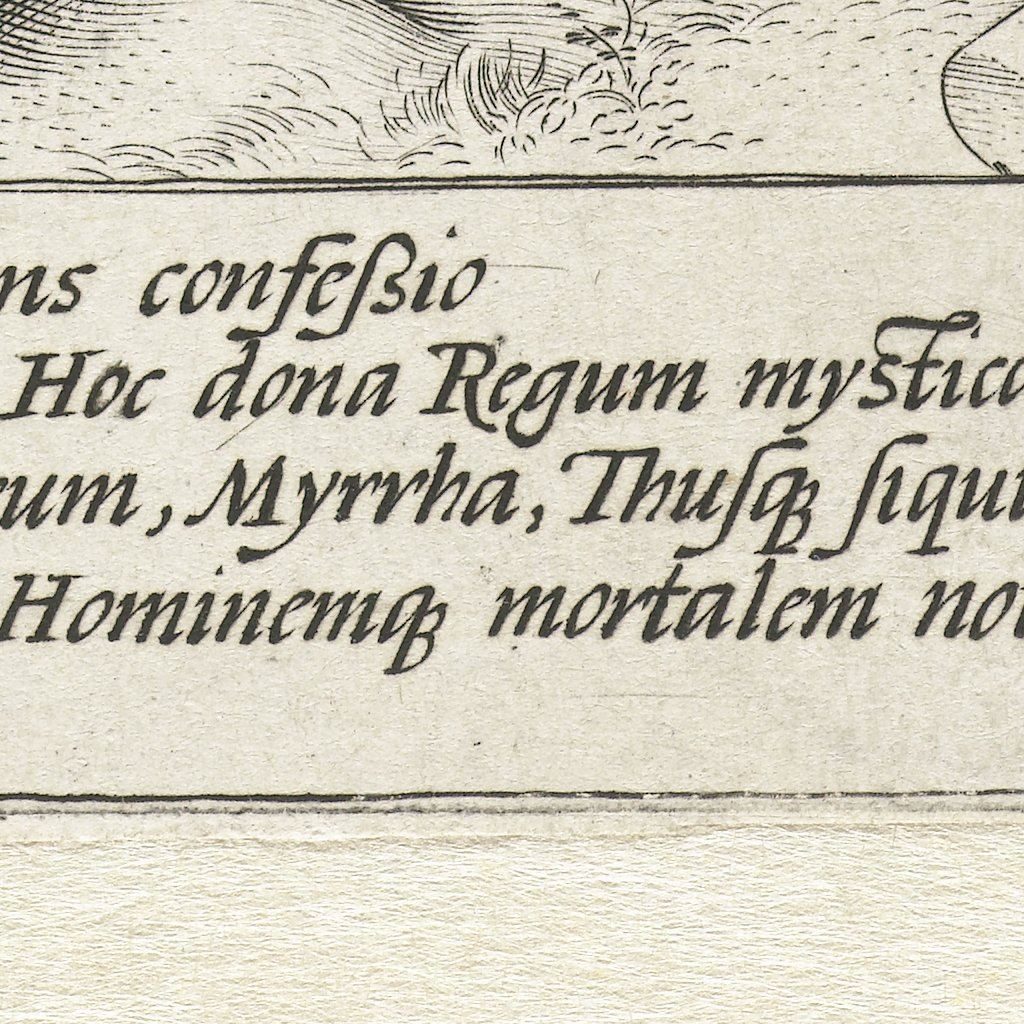 ns confeßio
Hoc dona Regum mystica
um, Myrrha, Thusq; siqui
Hominemq; mortalem no